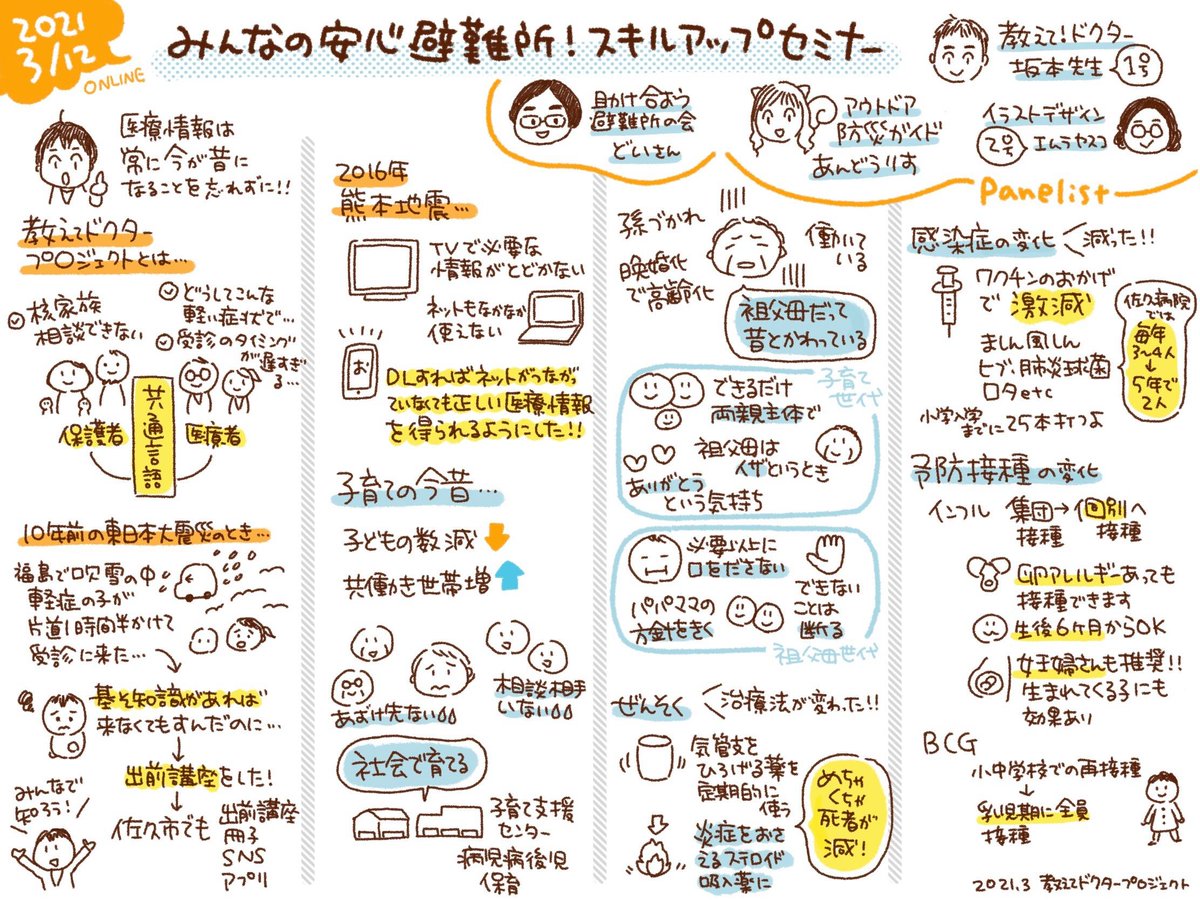 2021
3/12
ONLINE
みんなの安心避難所！スキルアップセミナー
教えて！ドクター
坂本先生
1号
イラストデザイン
2号
エムラヤスコ
助け合おう
避難所の会
どいさん
アウトドア
防災ガイド
あんどうりす
Panelist
医療情報は
常に今が昔に
なることを忘れずに!!
教えてドクター
プロジェクトとは…
核家族
相談できない
どうしてこんな
軽い症状で…
受診のタイミング
が遅すぎ
る…
共通言語
保護者
医療者
10年前の東日本大震災のとき…
福島で吹雪の中
軽症の子が
片道1時間半かけて
受診に来た…
基そ知識があれば
来なくてもすんだのに…
出前講座をした！
みんなで
知ろう！
佐久市でも
出前講座
冊子
SNS
アプリ
2016年
熊本地震…
TVで必要な
情報がとどかない
ネットもなかなか
使えない
お
DLすればネットがつながっ
ていなくても正しい医療情報
を得られるようにした!!
子育ての今昔…
子どもの数減
共働き世帯増
あずけ先ない
相談相手
いない
社会で育てる
子育て支援
センター
病児病後児
保育
孫づかれ
働いて
いる
晩婚化
で高齢化
祖父母だって
昔とかわっている
子育て
世代
できるだけ
両親主体で
祖父母は
イザというとき
ありがとう
という気持ち
必要以上に
口をださない
できない
ことは
断る
パパママの
方針をきく
祖父母世代
ぜんそく
治療法が変わった!!
気管支を
ひろげる薬を
定期的に
使う
炎症をおさ
えるステロイド
吸入薬に
めちゃ
くちゃ
死者が
減！
感染症の変化
減った!!
ワクチンのおかげ
で激減
ましん 風しん
ヒブ、肺炎球菌
ロタetc
小学入学
までに25本打つよ
佐久病院
では
毎年
3〜4人
↓
5年で
2人
予防接種の変化
インフル
集団→個別へ
接種 接種
卵アレルギーあっても
接種できます
生後6ケ月からOK
妊婦さんも推奨!!
生まれてくる子にも
効果あり
BCG
小中学校での再接種
↓
乳児期に全員
接種
2021.3 教えてドクタープロジェクト